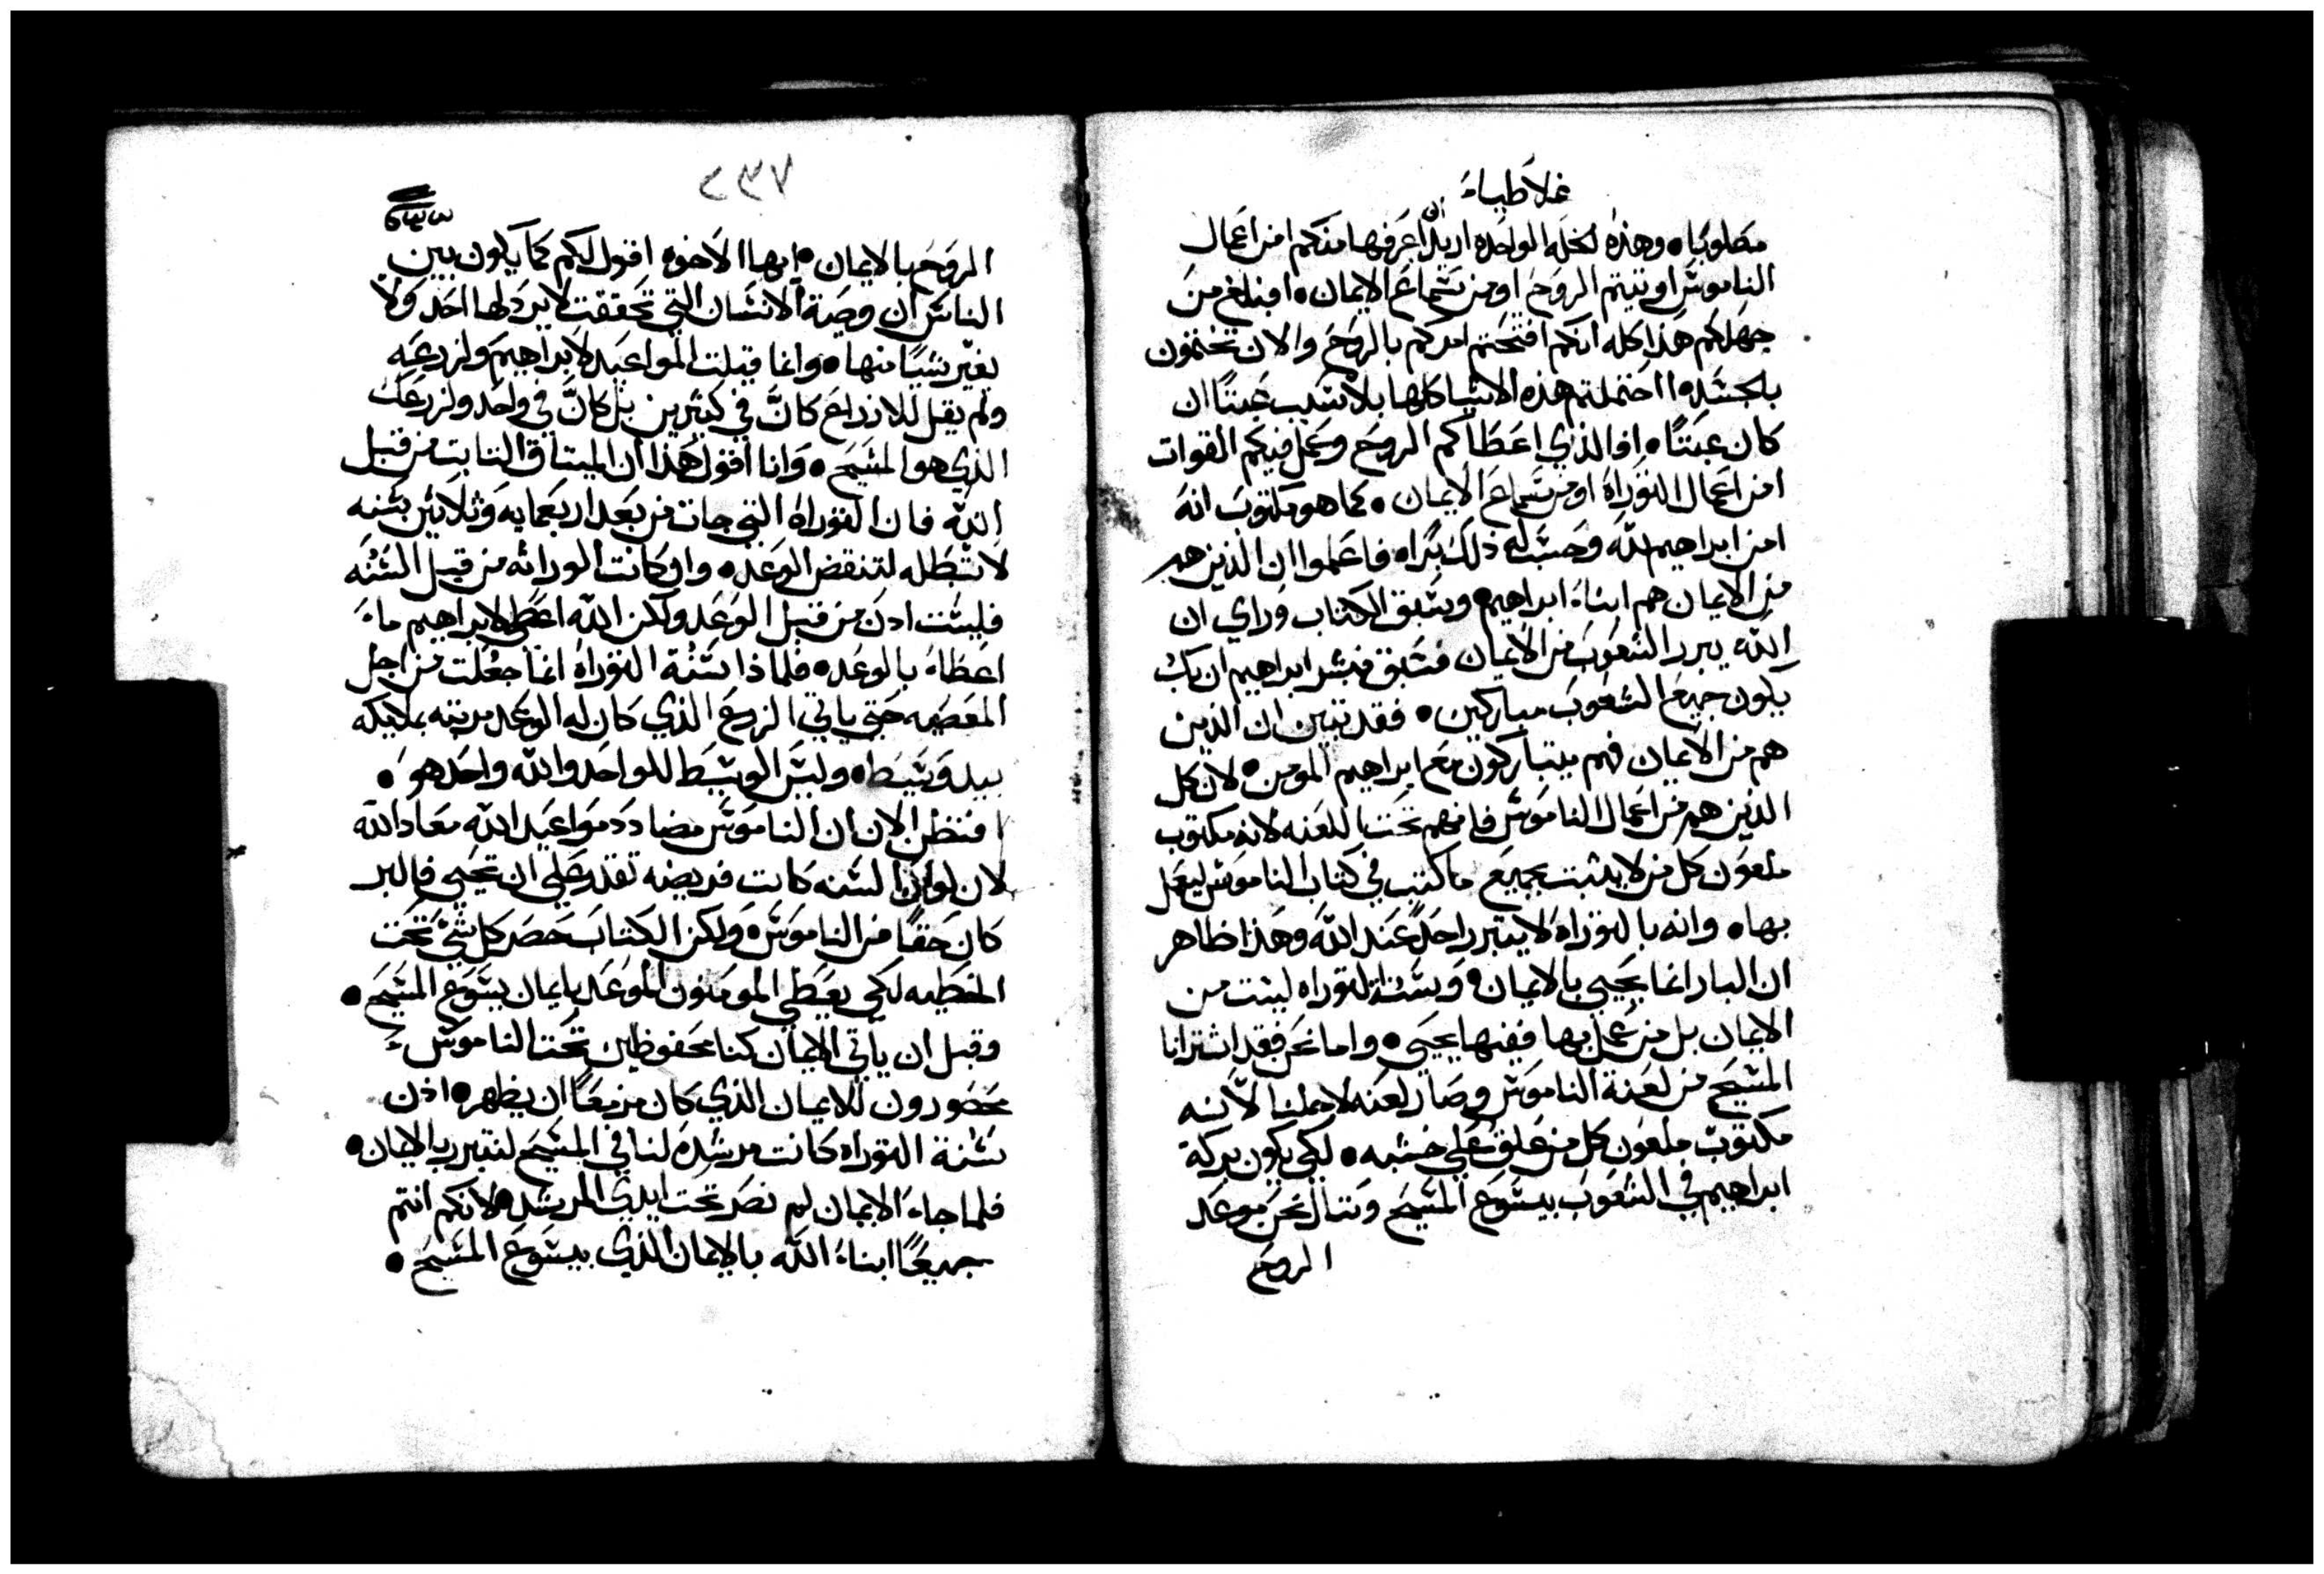 غلاطياء
مصلوبًا • وهذه الخله الواحده اريد ان اعرفها منكم امن اعمال
الناموس اوتيتم الروح او من سماع الايمان • افبلغ من
جهلكم هذا كله انكم افتحتم امركم بالروح والان تختمون
بالجسد • ااحتملتم هذه الاشيا كلها بلا سبب عبثًا ان
كان عبثًا • افالذي اعطاكم الروح وعمل فيكم القوات
امن اعمال التوراه او من سماع الايمان • كما هو مكتوب انه
امن ابراهيم بالله وحسب له ذلك برًا • فاعلموا ان الذين هم
من الايمان هم ابناء ابراهيم • وسبق الكتاب وراي ان
الله يبرر الشعوب من الايمان فسبق فبشر ابراهيم ان بك
يكون جميع الشعوب مباركين • فقد تبين ان الذين
هم من الايمان فهم يتباركون مع ابراهيم المومن • لان كل
الذين هم من اعمال الناموس فانهم تحت اللعنه لانه مكتوب
ملعون كل من لا يثبت بجميع ما كتب في كتاب الناموس ليعمل
بها • وانه بالتوراه لا يتبرر احدًا عند الله وهذا ظاهر
ان البار انما يحيي بالايمان • وسنة التوراه ليست من
الايمان بل من عمل بها ففيها يحيي • واما نحن فقد اشترانا
المسيح من لعنة الناموس وصار لعنه لاجلنا لانه
مكتوب ملعون كل من علق علي خشبه • لكي يكون بركة
ابراهيم في الشعوب بيسوع المسيح وننال نحن موعد
الروح
٢٣٧
الروح بالايمان • ايها الاخوه اقول لكم كما يكون بين
الناس ان وصية الانسان التي تحققت لا يرد لها احد ولا
يغير شيًا منها • وانما قيلت المواعيد لابراهيم ولزرعه
ولم يقل للازراع كانَّ في كثيرين بل كانَّ في واحد ولزرعك
الذي هو المسيح • وانا اقول هذا ان الميثاق الثابت من قبل
الله فان التوراه التي جات من بعد اربعمايه وثلاثين سنه
لا تبطله لتنقض الوعد • وان كانت الوراثه من قبل السنه
فليست اذن من قبل الوعد ولكن الله اعطي لابراهيم ما
اعطاه بالوعد • فلماذا سنة التوراه انما جعلت من اجل
المعصيه حتي ياتي الزرع الذي كان له الوعد مرتبه بملايكه
بيد وسيط • وليس الوسيط للواحد والله واحد هو •
افنظن الان ان الناموس مضادد مواعيد الله معاد الله
لان لو ان السنه كانت فريضه تقدر علي ان تحيي فالبر
كان حقًا من الناموس • ولكن الكتاب حصر كل شي تحت
الخطيه لكي يعطي المومنون الموعد بايمان يسوع المسيح •
وقبل ان ياتي الايمان كنا محفوظين تحت الناموس
محصورون للايمان الذي كان مزمعًا ان يظهر • اذن
سنة التوراه كانت مرشده لنا في المسيح لنتبرر بالايمان •
فلما جاء الايمان لم نصر تحت ايدي المرشد • لانكم انتم
جميعًا ابناء الله بالايمان الذي بيسوع المسيح •